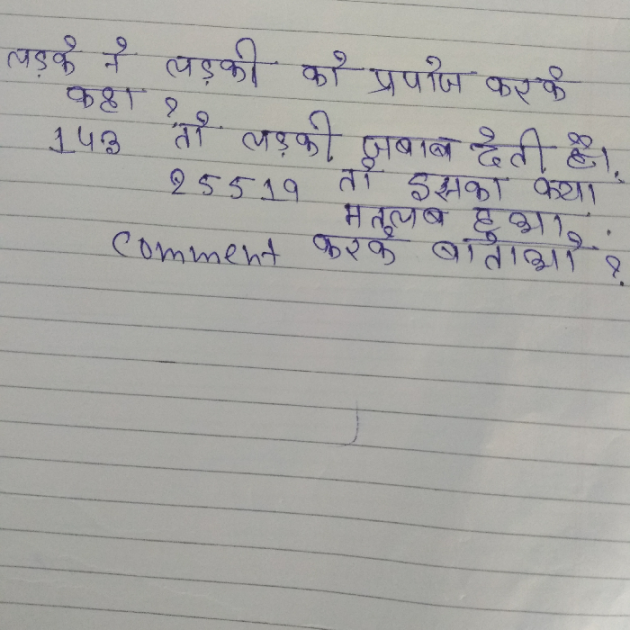 लड़के ने लड़की को प्रपोज करके
कहा ?
143 तो लड़की जबाब देती है।
25519 तो इसका क्या
मतलब हुआ,
comment करके बाताओ ?